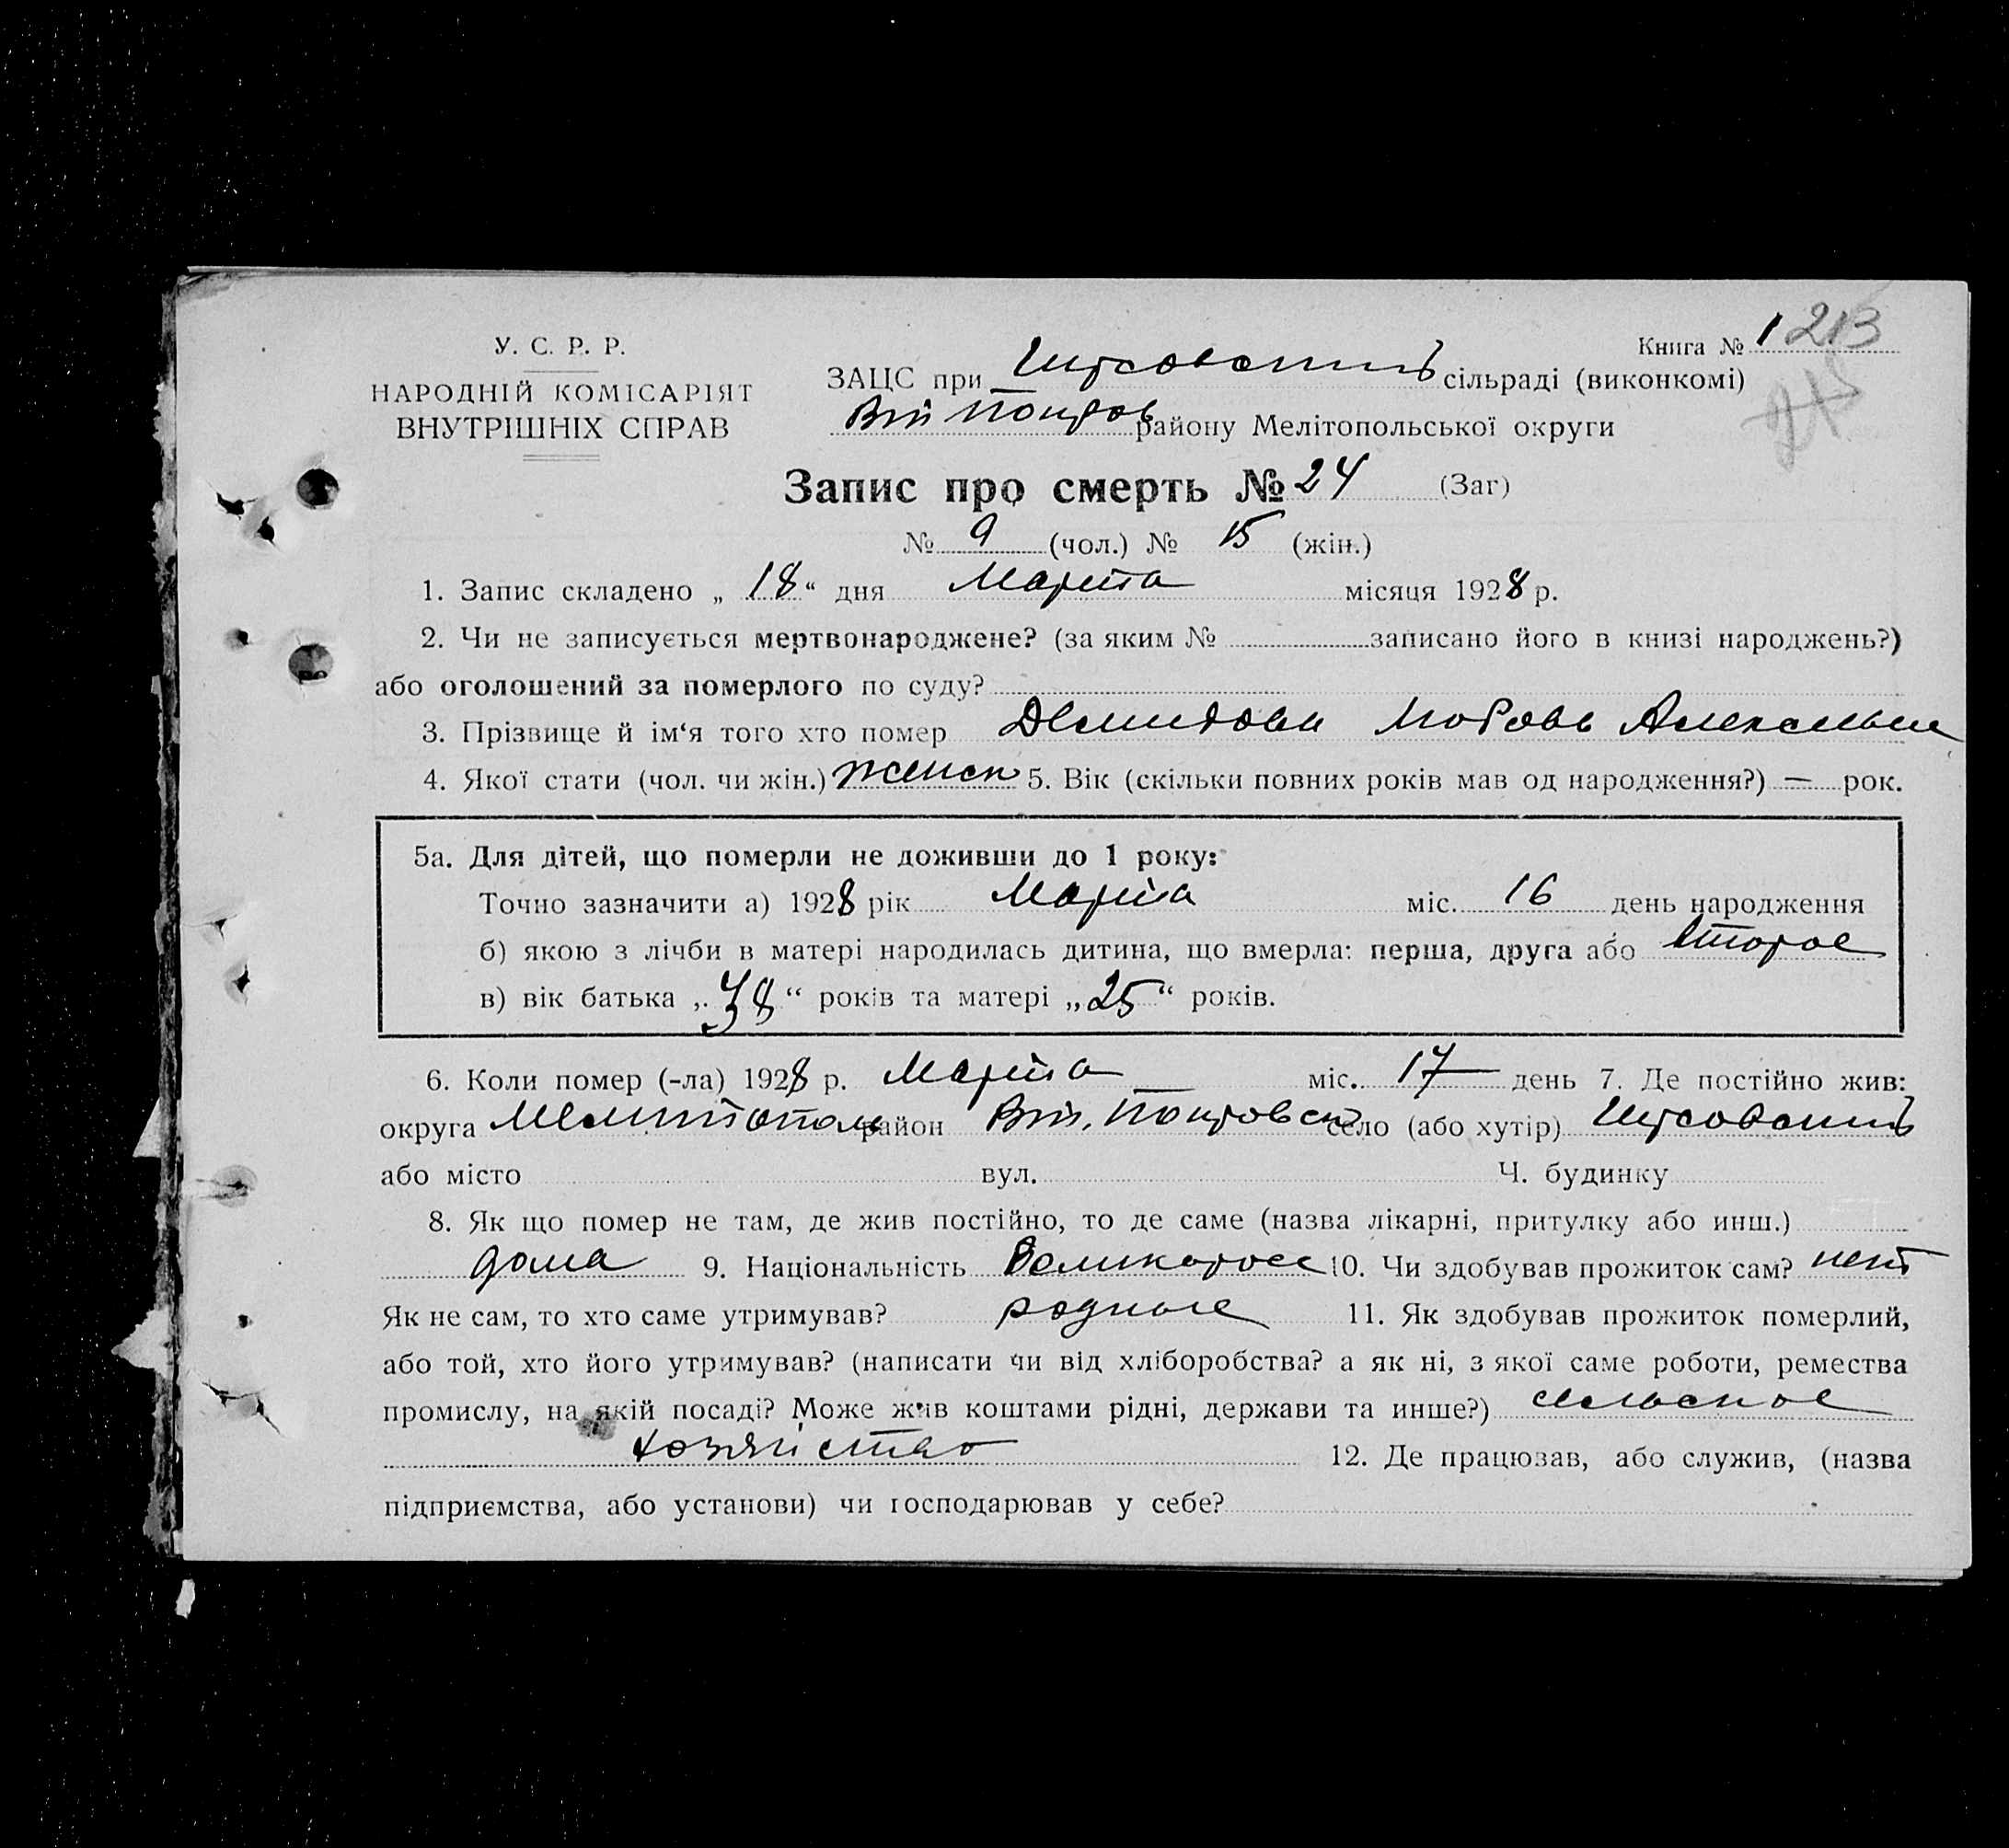 У. С. Р. Р.
НАРОДНІЙ КОМІСАРІЯТ
ВНУТРІШНІХ СПРАВ
Книга № 1 213
ЗАЦС при сільраді (виконкомі)
району Мелітопольської округи
Запис про смерть № 24 (Заг)
№ 9 (чол.) № 15 (жін.)
1. Запис складено „ 18 “ дня Марта місяця 1928 р.
2. Чи не записується мертвонароджене? (за яким № записано його в книзі народжень?)
або оголошений за померлого по суду?
3. Прізвище й ім‘я того хто помер Демидова Любовь Алексеевна
4. Якої стати (чол. чи жін.) женск 5. Вік (скільки повних років мав од народження?) — рок.
5а. Для дітей, що померли не доживши до 1 року:
Точно зазначити а) 1928 рік Марта міс. 16 день народження
б) якою з лічби в матері народилась дитина, що вмерла: перша, друга або второе
в) вік батька „ 38 “ років та матері „ 25 “ років.
6. Коли помер (-ла) 1928 р. Марта міс. 17 день 7. Де постійно жив:
округа Мелитополь район село (або хутір)
або місто вул. Ч. будинку
8. Як що помер не там, де жив постійно, то де саме (назва лікарні, притулку або инш.)
дома 9. Національність Великоросс 10. Чи здобував прожиток сам? нет
Як не сам, то хто саме утримував? родные 11. Як здобував прожиток померлий,
або той, хто його утримував? (написати чи від хліборобства? а як ні, з якої саме роботи, ремества
промислу, на якій посаді? Може жив коштами рідні, держави та инше?) сельское
хозяйство 12. Де працював, або служив, (назва
підприємства, або установи) чи господарював у себе?